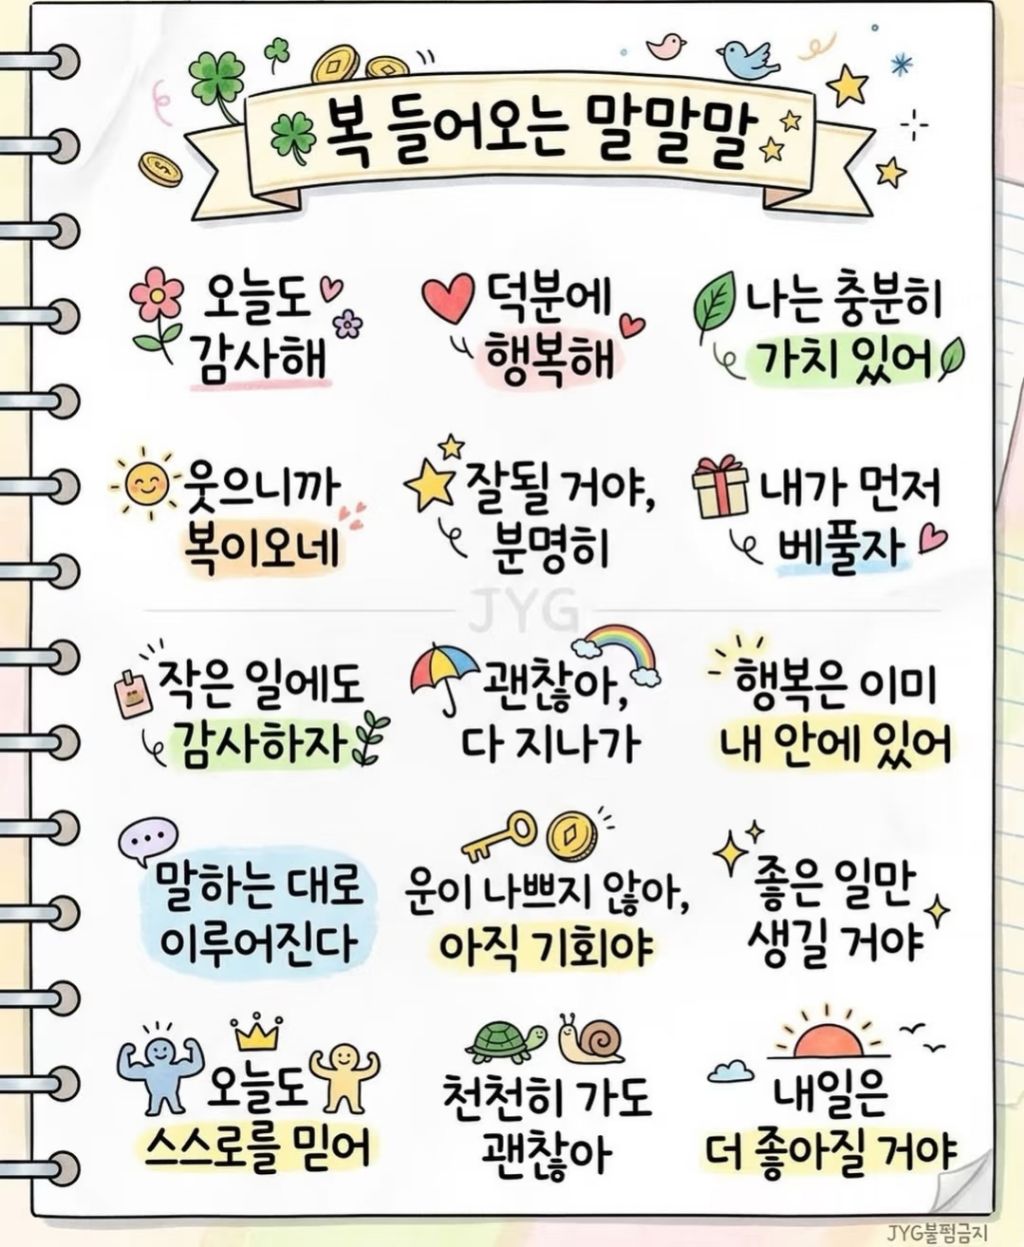 복 들어오는 말말말
오늘도
감사해
덕분에
행복해
나는 충분히
가치 있어
웃으니까
복이오네
잘될 거야,
분명히
내가 먼저
베풀자
JYG
작은 일에도
감사하자
괜찮아,
다 지나가
행복은 이미
내 안에 있어
말하는 대로
이루어진다
운이 나쁘지 않아,
아직 기회야
좋은 일만
생길 거야
오늘도
스스로를 믿어
천천히 가도
괜찮아
내일은
더 좋아질 거야
JYG불펌금지